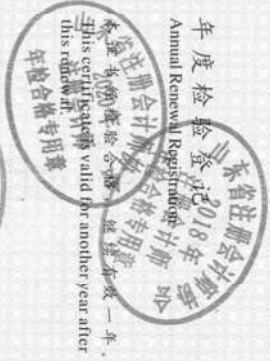 年度检验登记
Annual Renewal Registration
本证书经检验合格，继续有效一年。
This certificate is valid for another year after
this renewal.
山东省注册会计师协会
2018年
注册会计师
年检合格专用章